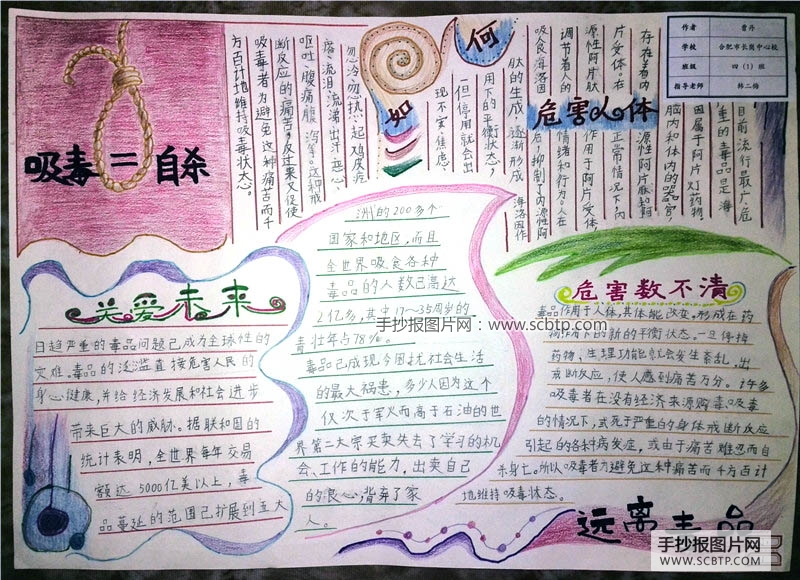 作者 曹丹
学校 合肥市长岗中心校
班级 四(1)班
指导老师 韩二梅
吸毒=自杀
如何
危害人体
目前流行最广危
重的毒品是海
因属于阿片灯药物
脑内和体内的器官
存在着内源性阿片肽和阿
片受体。在正常情况下内
源性阿片肽作用于阿片受体
调节着人的情绪和行为。人在
吸食海洛因后,抑制了内源性阿
肽的生成,逐渐形成海洛因作
用下的平衡状态,
一但停用就会出
现不安、焦虑、
忽冷忽热、起鸡皮疙
瘩、流泪、流涕、出汗、恶心、
呕吐、腹痛、腹泻等。这种戒
断反应的痛苦,反过来又促使
吸毒者为避免这种痛苦而千
方百计地维持吸毒状态。
关爱未来
日趋严重的毒品问题已成为全球性的
灾难。毒品的泛滥直接危害人民的
身心健康,并给经济发展和社会进步
带来巨大的威胁。据联和国的
统计表明,全世界每年交易
额达5000亿美以上,毒
品蔓延的范围已扩展到五大
洲的200多个
国家和地区,而且
全世界吸食各种
毒品的人数已高达
2亿多,其中17~35周岁的
青壮年占78%。
毒品已成现今困扰社会生活
的最大祸患,多少人因为这个
仅次于军火而高于石油的世
界第二大宗买卖失去了学习的机
会、工作的能力,出卖自己
的良心,背弃了家
人。
危害数不清
毒品作用于人体,其体能改变。形成在药
物作用下的新的平衡状态。一旦停掉
药物,生理功能就会发生紊乱,出
戒断反应,使人感到痛苦万分。许多
吸毒者在没有经济来源购毒、吸毒
的情况下,或死于严重的身体戒断反应
引起的各种病发症,或由于痛苦难忍而自
杀身亡。所以吸毒者为避免这种痛苦而千方百计
地维持吸毒状态。
远离毒品
手抄报图片网:www.scbtp.com
手抄报图片网
WWW.SCBTP.COM